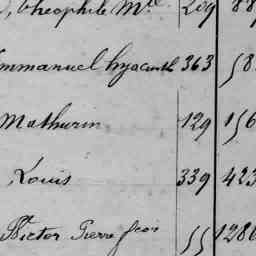 , Théophile Mel 209
Emmanuel hyacinth 363 58
Mathurin 129 156
, Louis 339 423
, Victor Pierre fcois 55 1280